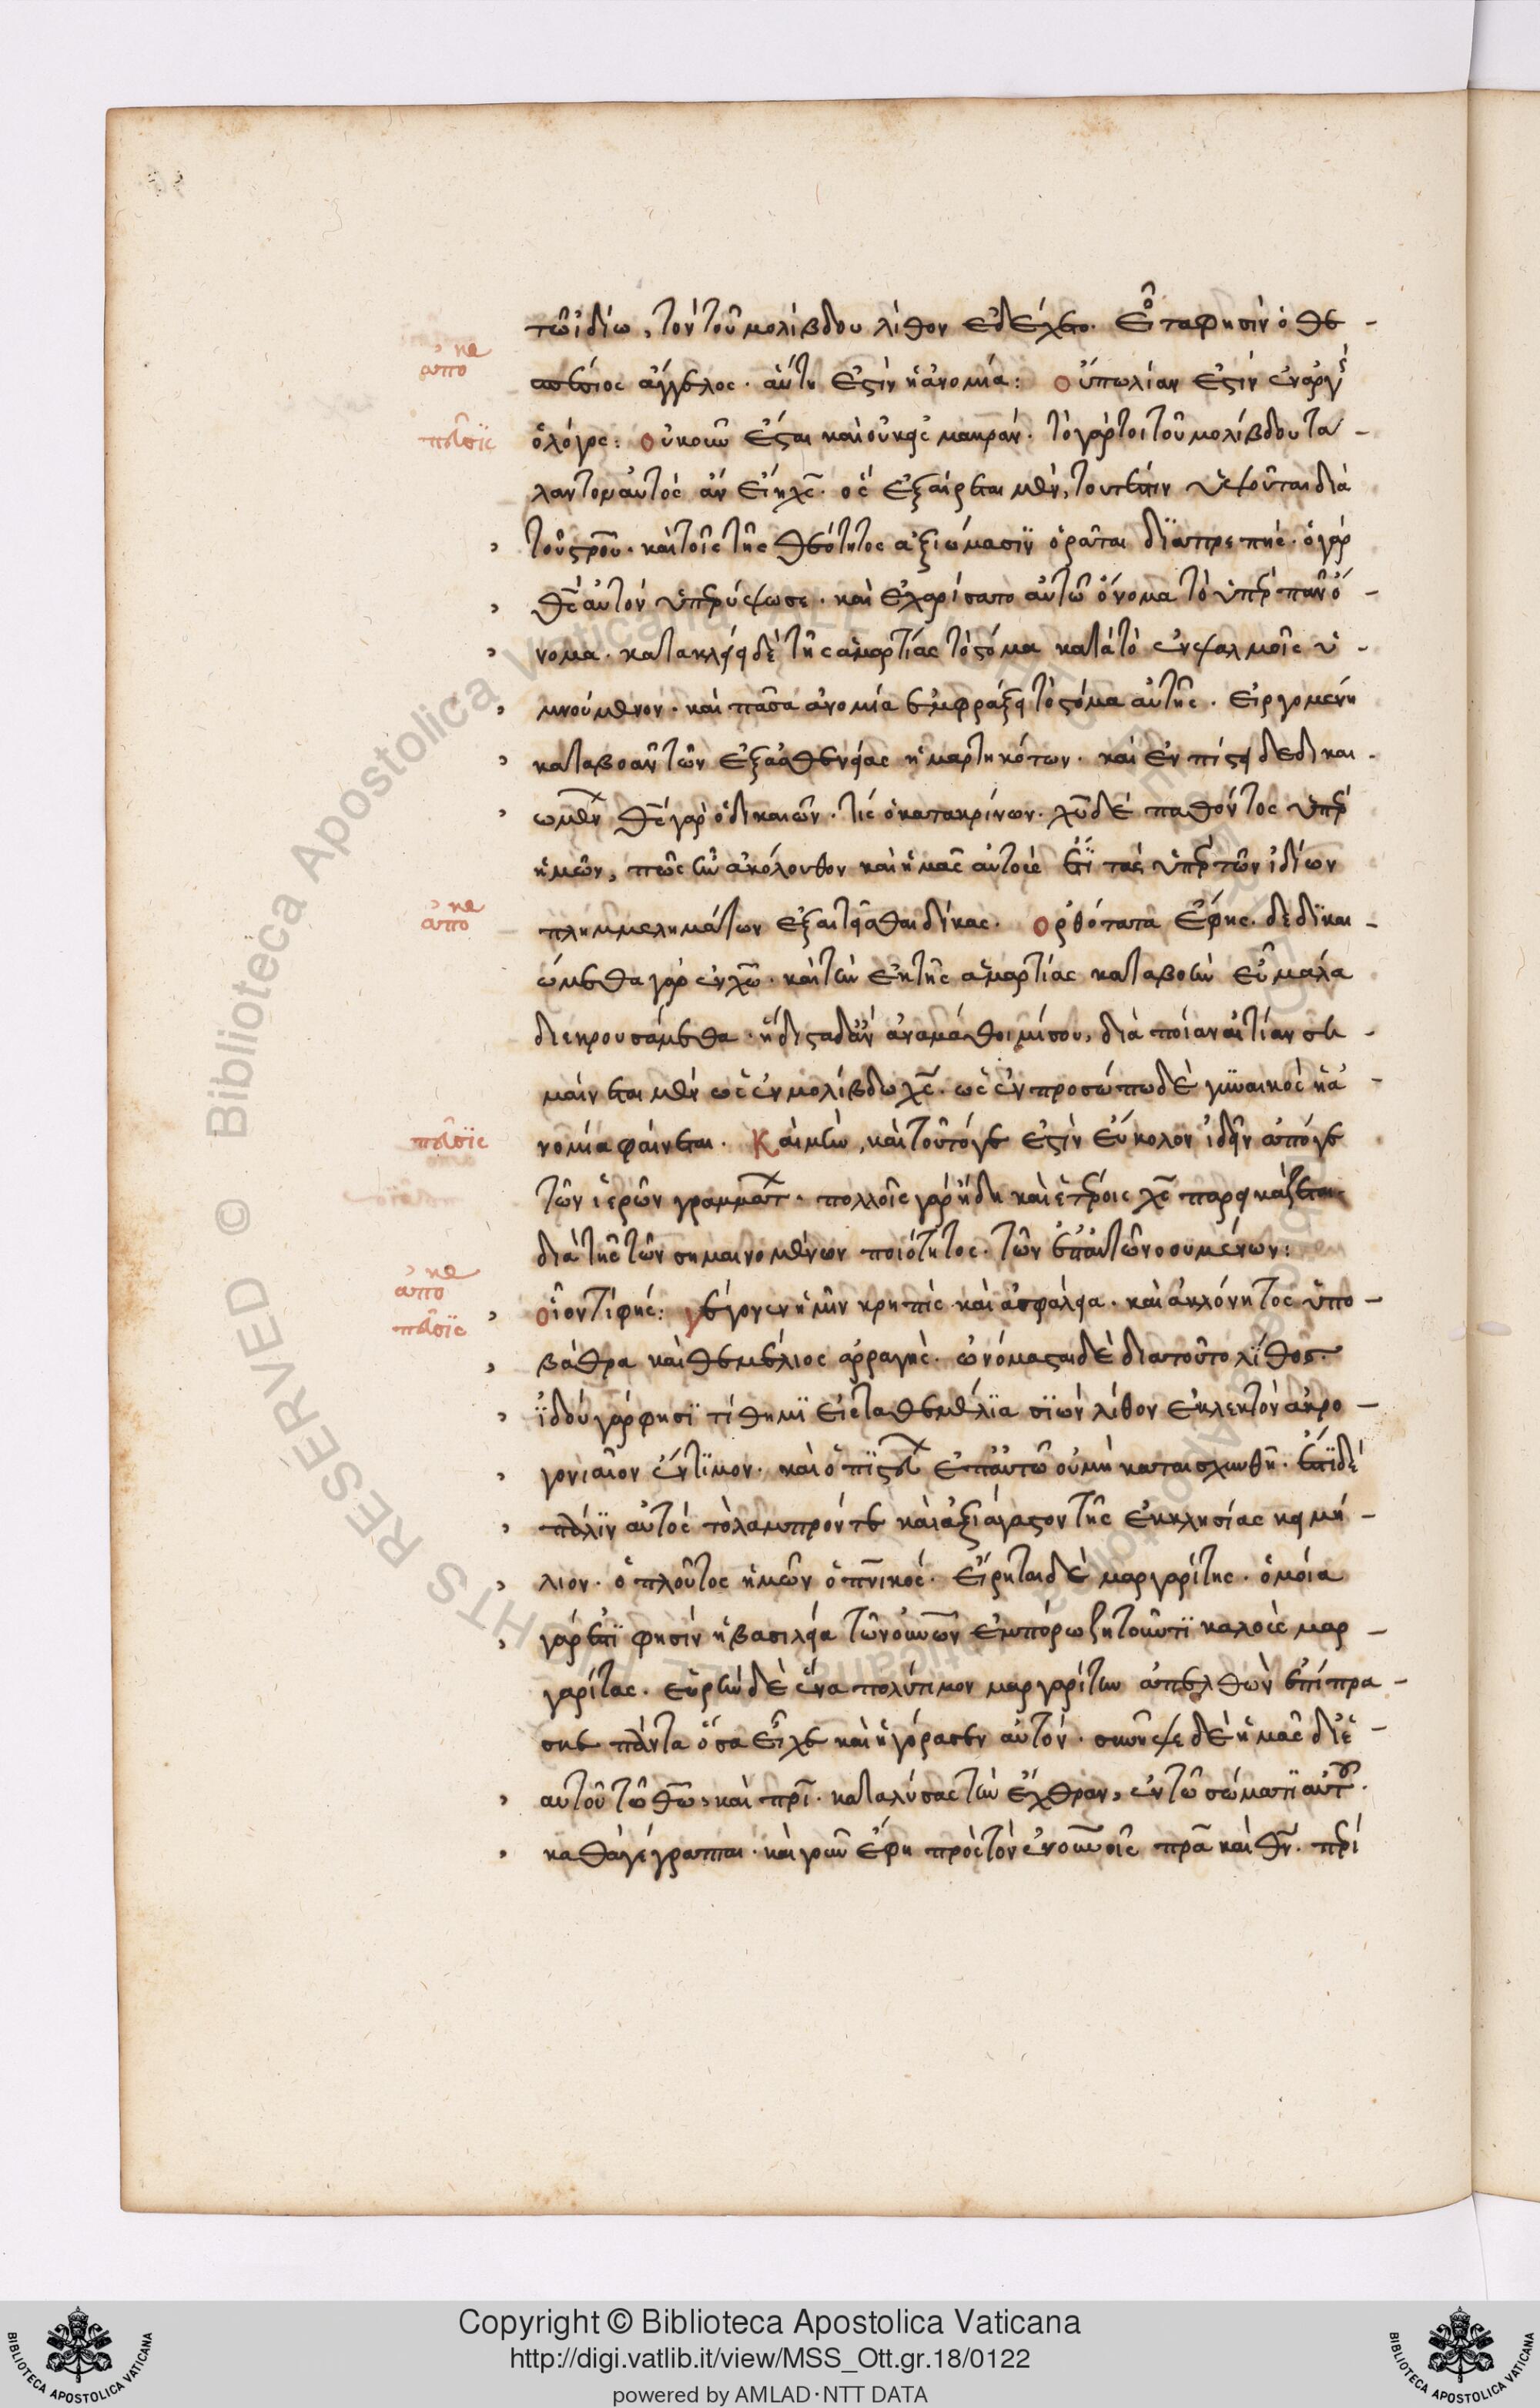 τῶ ἰδίω, τὸν τοῦ μολίβδου λίθον ἐδέχετο. Εἶτα φησὶν ὁ θε -
σπέσιος ἄγγελος. αὕτη ἐστὶν ἡ ἀνομία: Οὔπω λίαν ἐστὶν ἐναργὴς
ὁ λόγος: Οὐκοῦν ἔσται καὶ οὐκ εἰς μακράν. τὸ γάρ τοι τοῦ μολίβδου τα -
λαντον αὐτὸς ἂν εἴη χς. ὃς ἐξαίρεται μὲν, τουτέστιν ὑψοῦται διὰ
τοῦ στροῦ. καὶ τοῖς τῆς θεότητος ἀξιώμασιν ὁρᾶται διαπρεπής. ὁ γὰρ
θς αὐτὸν ὑπερύψωσε. καὶ ἐχαρίσατο αὐτῶ ὄνομα τὸ ὑπὲρ πᾶν ὄ -
νομα. κατακλείει δὲ τῆς ἁμαρτίας τὸ στόμα κατὰ τὸ ἐν ψαλμοῖς ὑ -
μνούμενον. καὶ πᾶσα ἀνομία ἐμφράξει τὸ στόμα αὐτῆς. εἰργομένη
καταβοᾶν τῶν ἐξ ἀσθενείας ἡμαρτηκότων. καὶ ἐν πίστει δεδικαι -
ωμένων θς γὰρ ὁ δικαιῶν. τίς ὁ κατακρίνων. χυ δὲ παθόντος ὑπὲρ
ἡμῶν, πῶς ἦν ἀκόλουθον καὶ ἡμᾶς αὐτοὺς ἔτι τὰς ὑπὲρ τῶν ἰδίων
πλημμελημάτων ἐξαιτεῖσθαι δίκας. Ὀρθότατα ἔφης. δεδικαι -
ώμεθα γὰρ ἐν χω. καὶ τὴν ἐκ τῆς ἁμαρτίας καταβοὴν εὖ μάλα
διεκρουσάμεθα. ἥδιστα δ' ἂν ἀναμάθοιμί σου, διὰ ποίαν αἰτίαν ση -
μαίνεται μὲν ὡς ἐν μολίβδω χς. ὡς ἐν προσώπω δὲ γυναικὸς ἡ ἀ -
νομία φαίνεται. Καὶ μὴν, καὶ τοῦτό γε ἐστὶν εὔκολον ἰδεῖν ἀπό γε
τῶν ἱερῶν γραμμάτων. πολλοῖς γὰρ ἤδη καὶ ἑτέροις χς παρεικάζεται
διὰ τῆς τῶν σημαινομένων ποιότητος. τῶν ἐπ' αὐτῶ νοουμένων:
Οἷόν τι φής: γέγονεν ἡμῖν κρηπὶς καὶ ἀσφάλεια. καὶ ἀκλόνητος ὑπο -
βάθρα καὶ θεμέλιος ἀρραγὴς. ὠνόμασται δὲ διὰ τοῦτο λίθος.
ἰδοὺ γάρ φησι τίθημι εἰς τὰ θεμέλια σιὼν λίθον ἐκλεκτὸν ἀκρο -
γονιαῖον ἔντιμον. καὶ ὁ πιστεύων ἐπ' αὐτῶ οὐ μὴ καταισχυνθῆ. ἔτι δὲ
πάλιν αὐτὸς τὸ λαμπρόν τε καὶ ἀξιάγαστον τῆς ἐκκλησίας κειμή -
λιον. ὁ πλοῦτος ἡμῶν ὁ πνικός. εἴρηται δὲ μαργαρίτης. ὁμοία
γάρ ἐστι φησὶν ἡ βασιλεία τῶν οὐνῶν ἐμπόρω ζητοῦντι καλοὺς μαρ -
γαρίτας. εὑρὼν δὲ ἕνα πολύτιμον μαργαρίτην ἀπελθὼν ἐπίπρα -
σκε πάντα ὅσα εἶχε καὶ ἠγόρασεν αὐτόν. συνῆψε δὲ ἡμᾶς δι' ἑ -
αυτοῦ τῶ θω, καὶ πρι. καταλύσας τὴν ἔχθραν, ἐν τῶ σώματι αὐτοῦ.
καθὰ γέγραπται. καὶ γοῦν ἔφη πρὸς τὸν ἐν οὐνοῖς πρα καὶ θν. περὶ
ἀπο κε
παλ
ἀπο κε
παλ
ἀπο κε
παλ
Copyright © Biblioteca Apostolica Vaticana
http://digi.vatlib.it/view/MSS_Ott.gr.18/0122
powered by AMLAD·NTT DATA